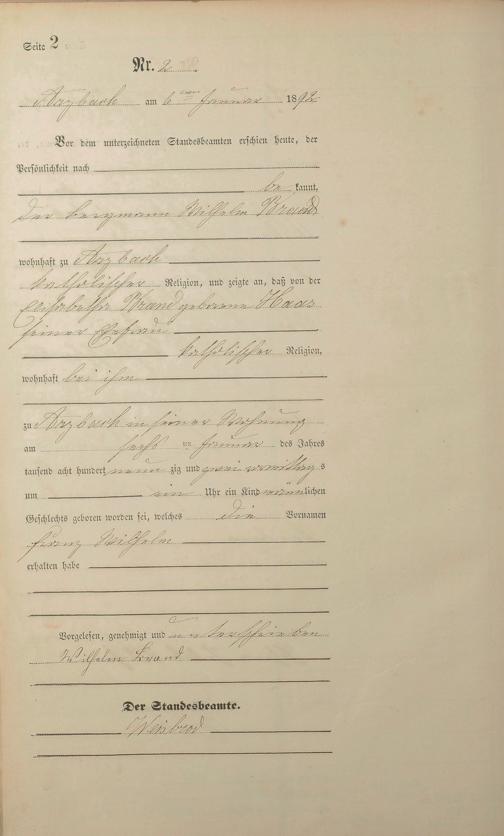 Seite 2
Nr. 2.
Arzbach am 6ten Januar 1892
Vor dem unterzeichneten Standesbeamten erschien heute, der
Persönlichkeit nach
be kannt,
der Bergmann Wilhelm Brand
wohnhaft zu Arzbach
katholischer Religion, und zeigte an, daß von der
Elisabetha Brand geborene Haas
seiner Ehefrau
katholischer Religion,
wohnhaft bei ihm
zu Arzbach in seiner Wohnung
am sechs ten Januar des Jahres
tausend acht hundert neun zig und zwei vormittag s
um ein Uhr ein Kind männlichen
Geschlechts geboren worden sei, welches die Vornamen
Franz Wilhelm
erhalten habe
Vorgelesen, genehmigt und unterschrieben
Wilhelm Brand
Der Standesbeamte.
Weisbrod